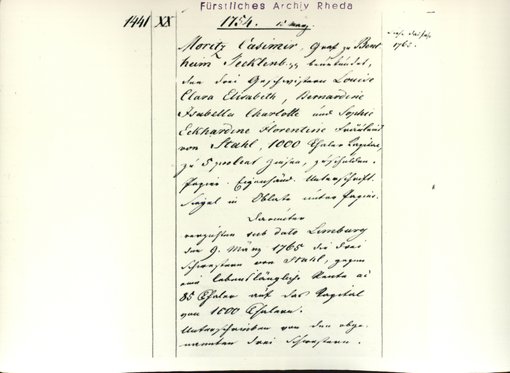 Fürstliches Archiv Rheda
1441 XX 1754. 12 März
1765.
Moritz Casimir, Graf zu Bent
heim Tecklenb. bekundet,
den drei Geschwistern Louise
Clara Elisabeth, Bernardine
Isabella Charlotte und Sophie
Eckhardine Florentine Fräulein
von Stahl, 1000 Thaler Capital,
zu 5 procent Zinsen, zu schulden.
Papier. Eigenhänd. Unterschrift.
Siegel in Oblate unter Papier.
Darunter
verzichten sub dato Limburg
den 9. März 1765 die drei
Schwestern von Stahl, gegen
eine lebenslängliche Rente ad
85 Thaler auf das Kapital
von 1000 Thalern.
Unterschrieben von den obge-
nannten drei Schwestern.